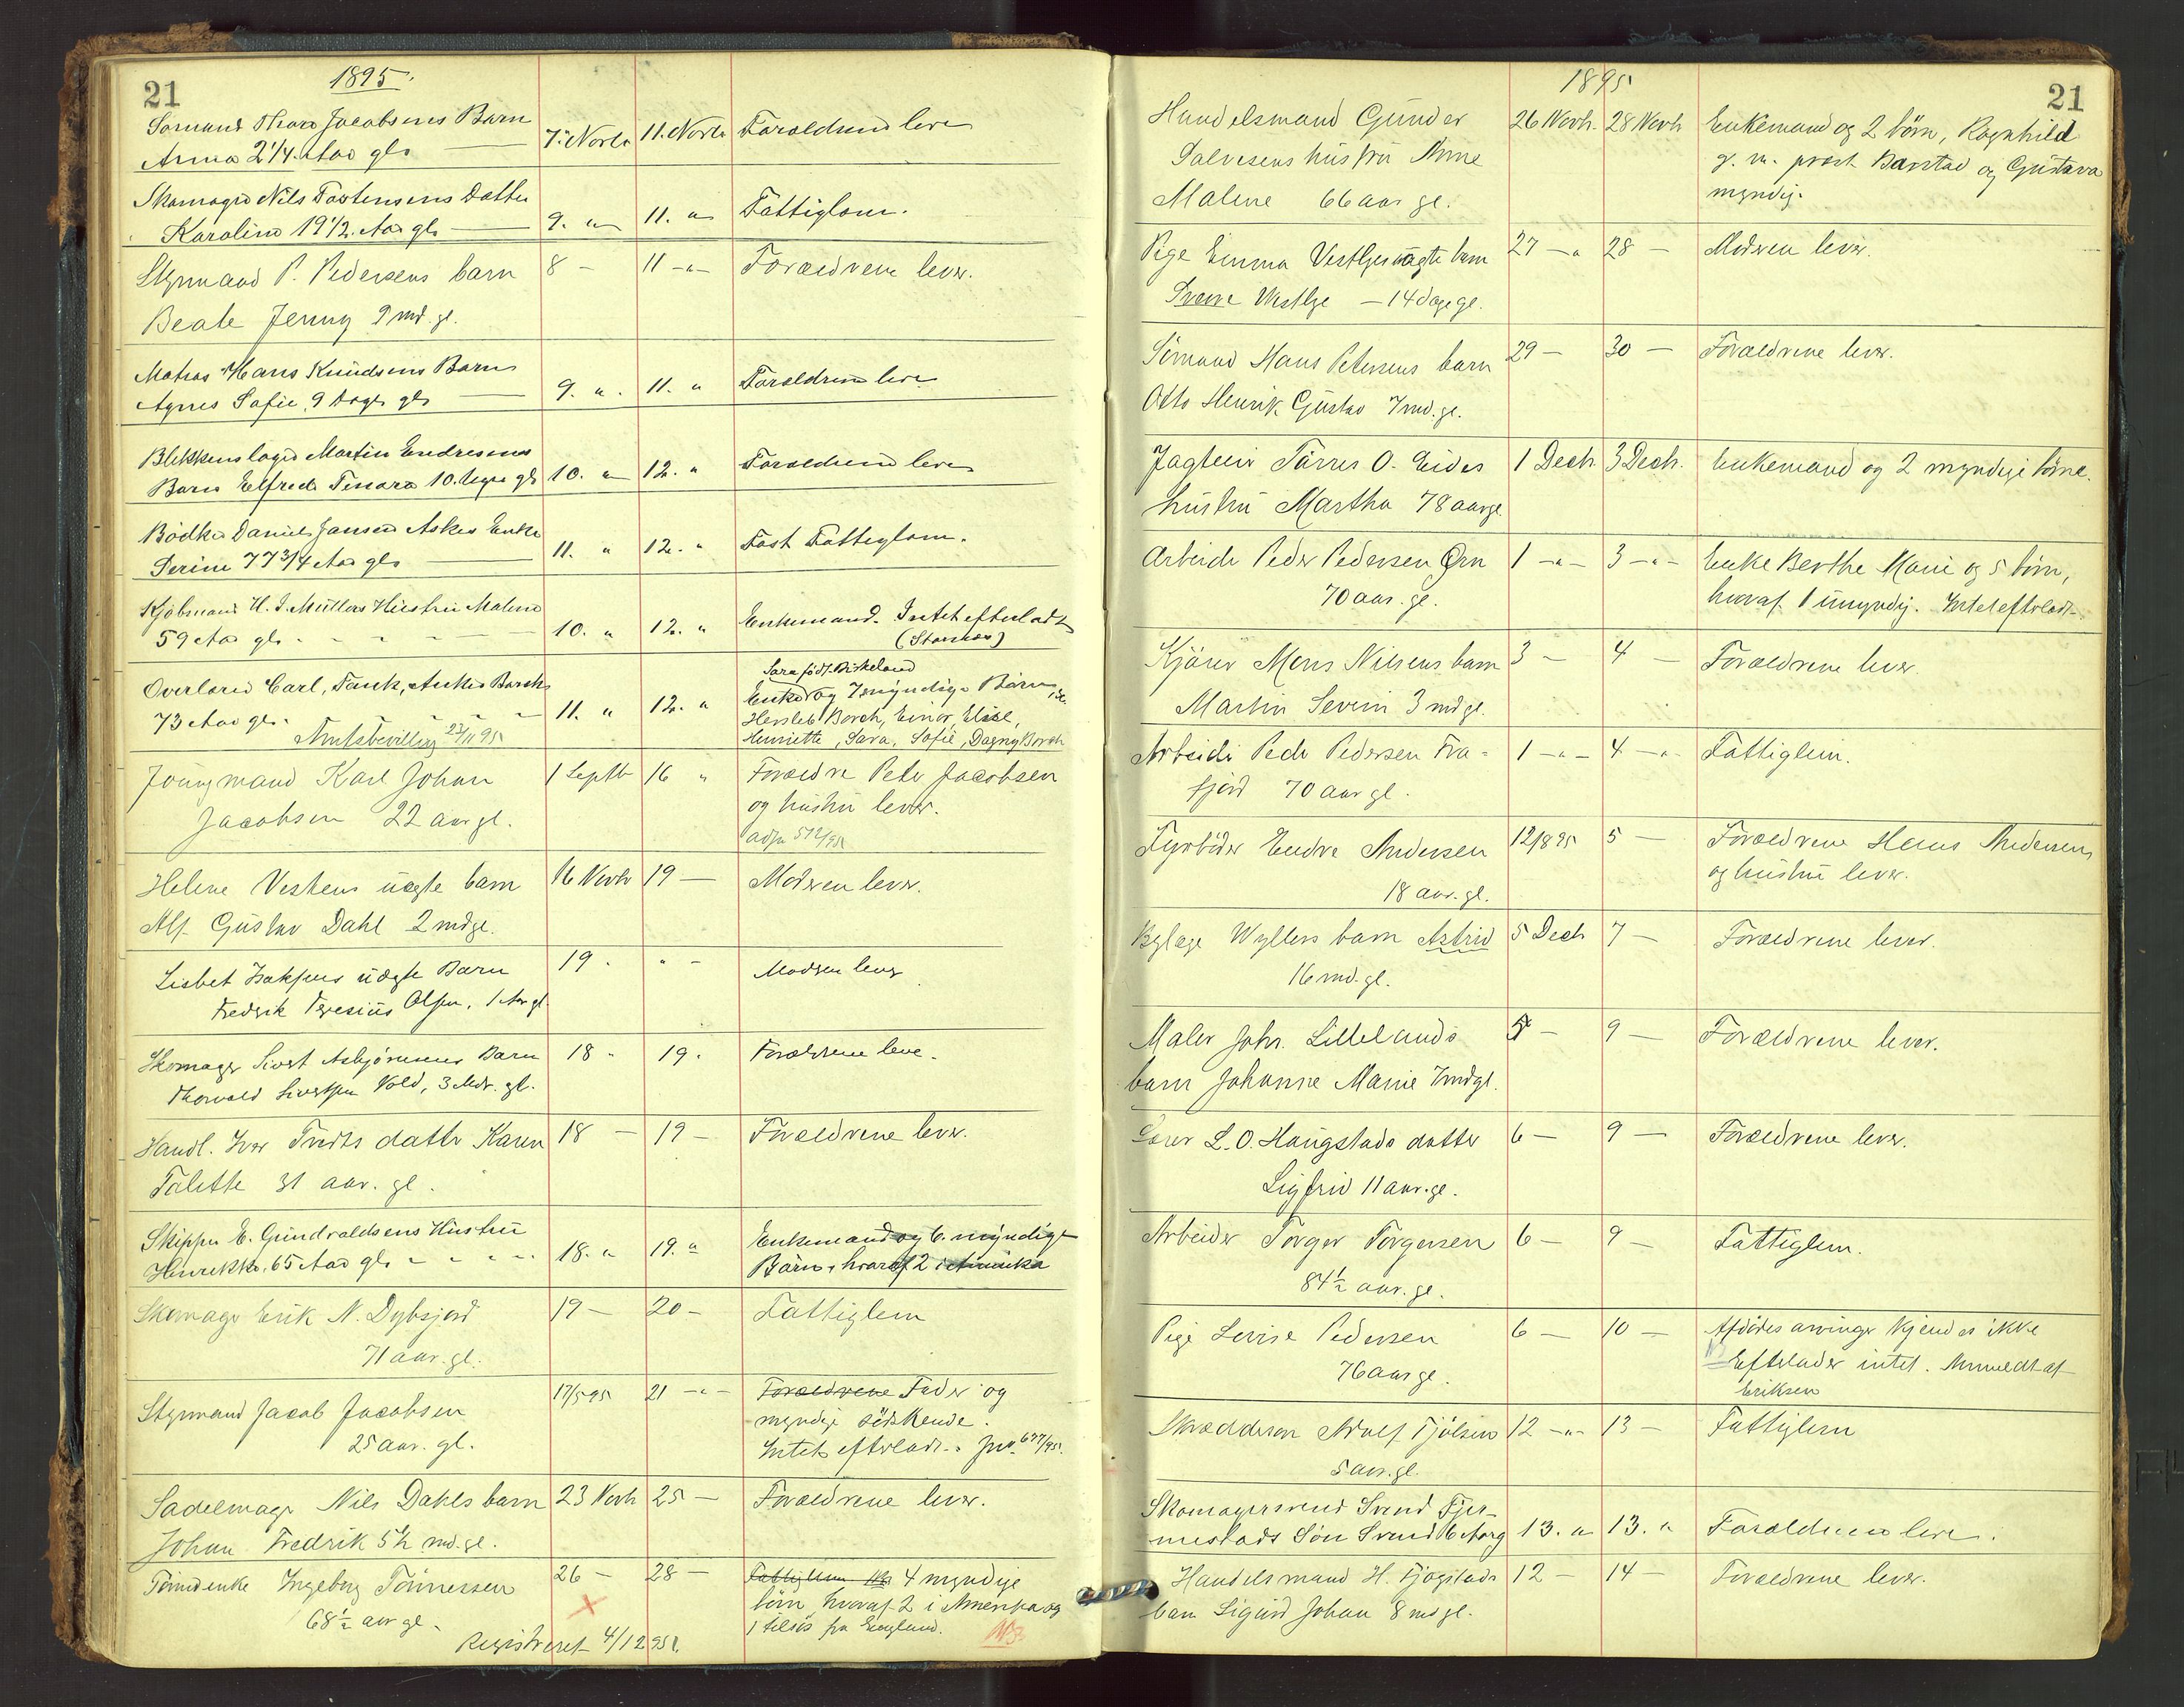 21
1895.
Sømand Thore Jacobsens Barn
Anna 2 1/4 Aar gl. 7. Novbr 11. Novbr Forældrene lever
Skomager Nils Torstensens Datter
Karoline 19 1/2 Aar gl. 9. " 11. " Fattiglem.
Styrmand P. Pedersens barn 8 - 11 -"- Forældrene lever.
Beate Jenny 9 md. gl.
Matros Hans Knudsens Barn
Agnes Sofie, 9 Dage gl. 9. " 11. " Forældrene lever
Blikkenslager Martin Endresens
Barn Elfrede 10. Uger gl. 10. " 12. " Forældrene lever
Bødker Daniel Jansen Askes Enke
Serine 77 3/4 Aar gl. 11. " 12. " Fast Fattiglem.
Kjøbmand H. J. Müllers Hustru Malene
59 Aar gl. 10. " 12. " Enkemand. Intet efterladt
Sara født Birkeland
Overlærer Carl, Fanck, Anker Borchs
73 Aar gl. 11. " 12. " Enke og 7 myndige Børn,
Hersleb Borch, Einar, Elise,
Henriette, Sara, Sofie, Dagny Borch
Amtsbevilling 23/11 95
Jungmand Karl Johan 1 Septb 16 " Forældre Peter Jacobsen
Jacobsen 22 aar gl. og hustru lever.
Helene Vestens uægte barn 16 Novbr 19 — Moderen lever.
Alf Gustav Dahl 2 md gl.
Lisbet Isaksens uægte Barn 19 - " - Moderen lever
Fredrik Olsen, 1 Aar gl.
Skomager Sivert Asbjørnsens Barn 18 - 19 - Forældrene lever.
Thorvald Sivertsen Vold, 3 Mdr. gl.
Handl. Ivar Tvedts datter Karen 18 — 19 - Forældrene lever.
Talette 31 aar. gl.
Skipper E. Gundvaldsens Hustru
Henrikke, 65 Aar gl. 18. " 19. " Enkemand og 6. myndige
Børn, hvoraf 2 i Amerika
Skomager Erik N. Dybsjord 19 — 20 - Fattiglem
71 aar. gl.
Styrmand Jacob Jacobsen 17/5 95 21 -"- Forældrene Fader og
25 aar. gl. myndige søskende.
Intet efterladt. Jno. 677/95.
Sadelmager Nils Dahls barn 23 Novb 25 — Forældrene lever.
Johan Fredrik 5 1/2 md. gl.
Tømdenke Ingeborg Tønnessen 26 — 28 — Fattiglem 4 myndige
68 1/2 aar gl. børn, hvoraf 2 i Amerika og
1 tilsøs fra England. NB.
Registreret 4/12 95.
1895
21
Handelsmand Gunder 26 Novb. 28 Novb Enkemand og 2 børn, Ragnhild
Salvesens hustru Anne g. m. prest Barstad og Gustava
Malene 66 aar gl. myndig.
Pige Emma Vestlyes uægte barn 27 -" 28 — Moderen lever.
Sverre Vestlye — 14 dage gl.
Sømand Hans Petersens barn 29 — 30 — Forældrene lever.
Otto Henrik Gustav 7 md. gl.
Jagteier Tørres O. Eides 1 Decb 3 Decb. Enkemand og 2 myndige børn.
hustru Martha 78 aar gl.
Arbeider Peder Pedersen Ørn 1 -"- 3 -"- Enke Berthe Marie og 5 børn,
70 aar. gl. hvoraf 1 umyndig. Intet efterladt.
Kjører Mons Nilsens barn 3 — 4 — Forældrene lever.
Martin Severin 3 md gl.
Arbeider Peder Pedersen Fra- 1 -"- 4 -"- Fattiglem.
fjord 70 aar gl.
Fyrbøder Endre Andersen 12/8 95 5 — Forældrene Hans Andersen
18 aar. gl. og hustru lever.
Bylæge Wyllers barn Astrid 5 Decb 7 — Forældrene lever.
16 md. gl.
Maler Johs. Lillelands 5 — 9 — Forældrene lever.
barn Johanne Marie 7 md gl.
Lærer L. O. Haugstads datter 6 — 9 — Forældrene lever.
Sigfrid 11 aar. gl.
Arbeider Torger Torgersen 6 — 9 — Fattiglem.
84 1/2 aar. gl.
Pige Lovise Pedersen 6 — 10 — Afdødes arvinger kjendes ikke
76 aar gl. Efterlader intet. Anmeldt af
Eriksen
Skræddersøn Adolf Tjølsen 12 -"- 13 — Fattiglem
5 aar. gl.
Skomagersvend Svend Tjer-
mestads Søn Svend 6 Aar g 13. " 13. " Forældrene lever.
Handelsmand H. Fjogstads 12 — 14 — Forældrene lever.
barn Sigurd Johan 8 md gl.